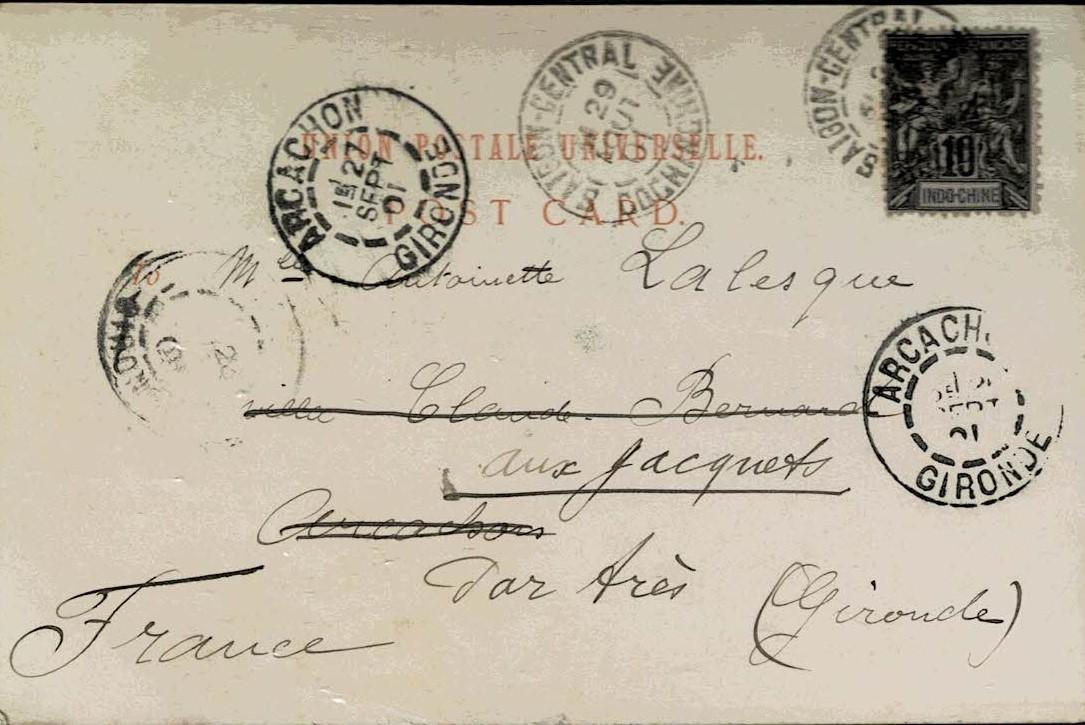 SAIGON-CENTRAL
29
AOUT
01
COCHINCHINE
SAIGON-CENTRAL
10
INDO-CHINE
ARCACHON
27
SEPT
01
GIRONDE
UNION POSTALE UNIVERSELLE.
POST CARD.
To Mlle Antoinette Lalesque
villa Claude Bernard
aux Jacquets
Arcachon
par Arès (Gironde)
France
ARCACH
01
GIRONDE